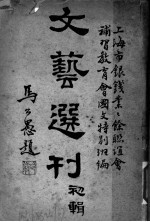 上海市銀錢業業餘聯誼會
補習教育會國文特別班編
文藝選刊
初輯
馬公愚題